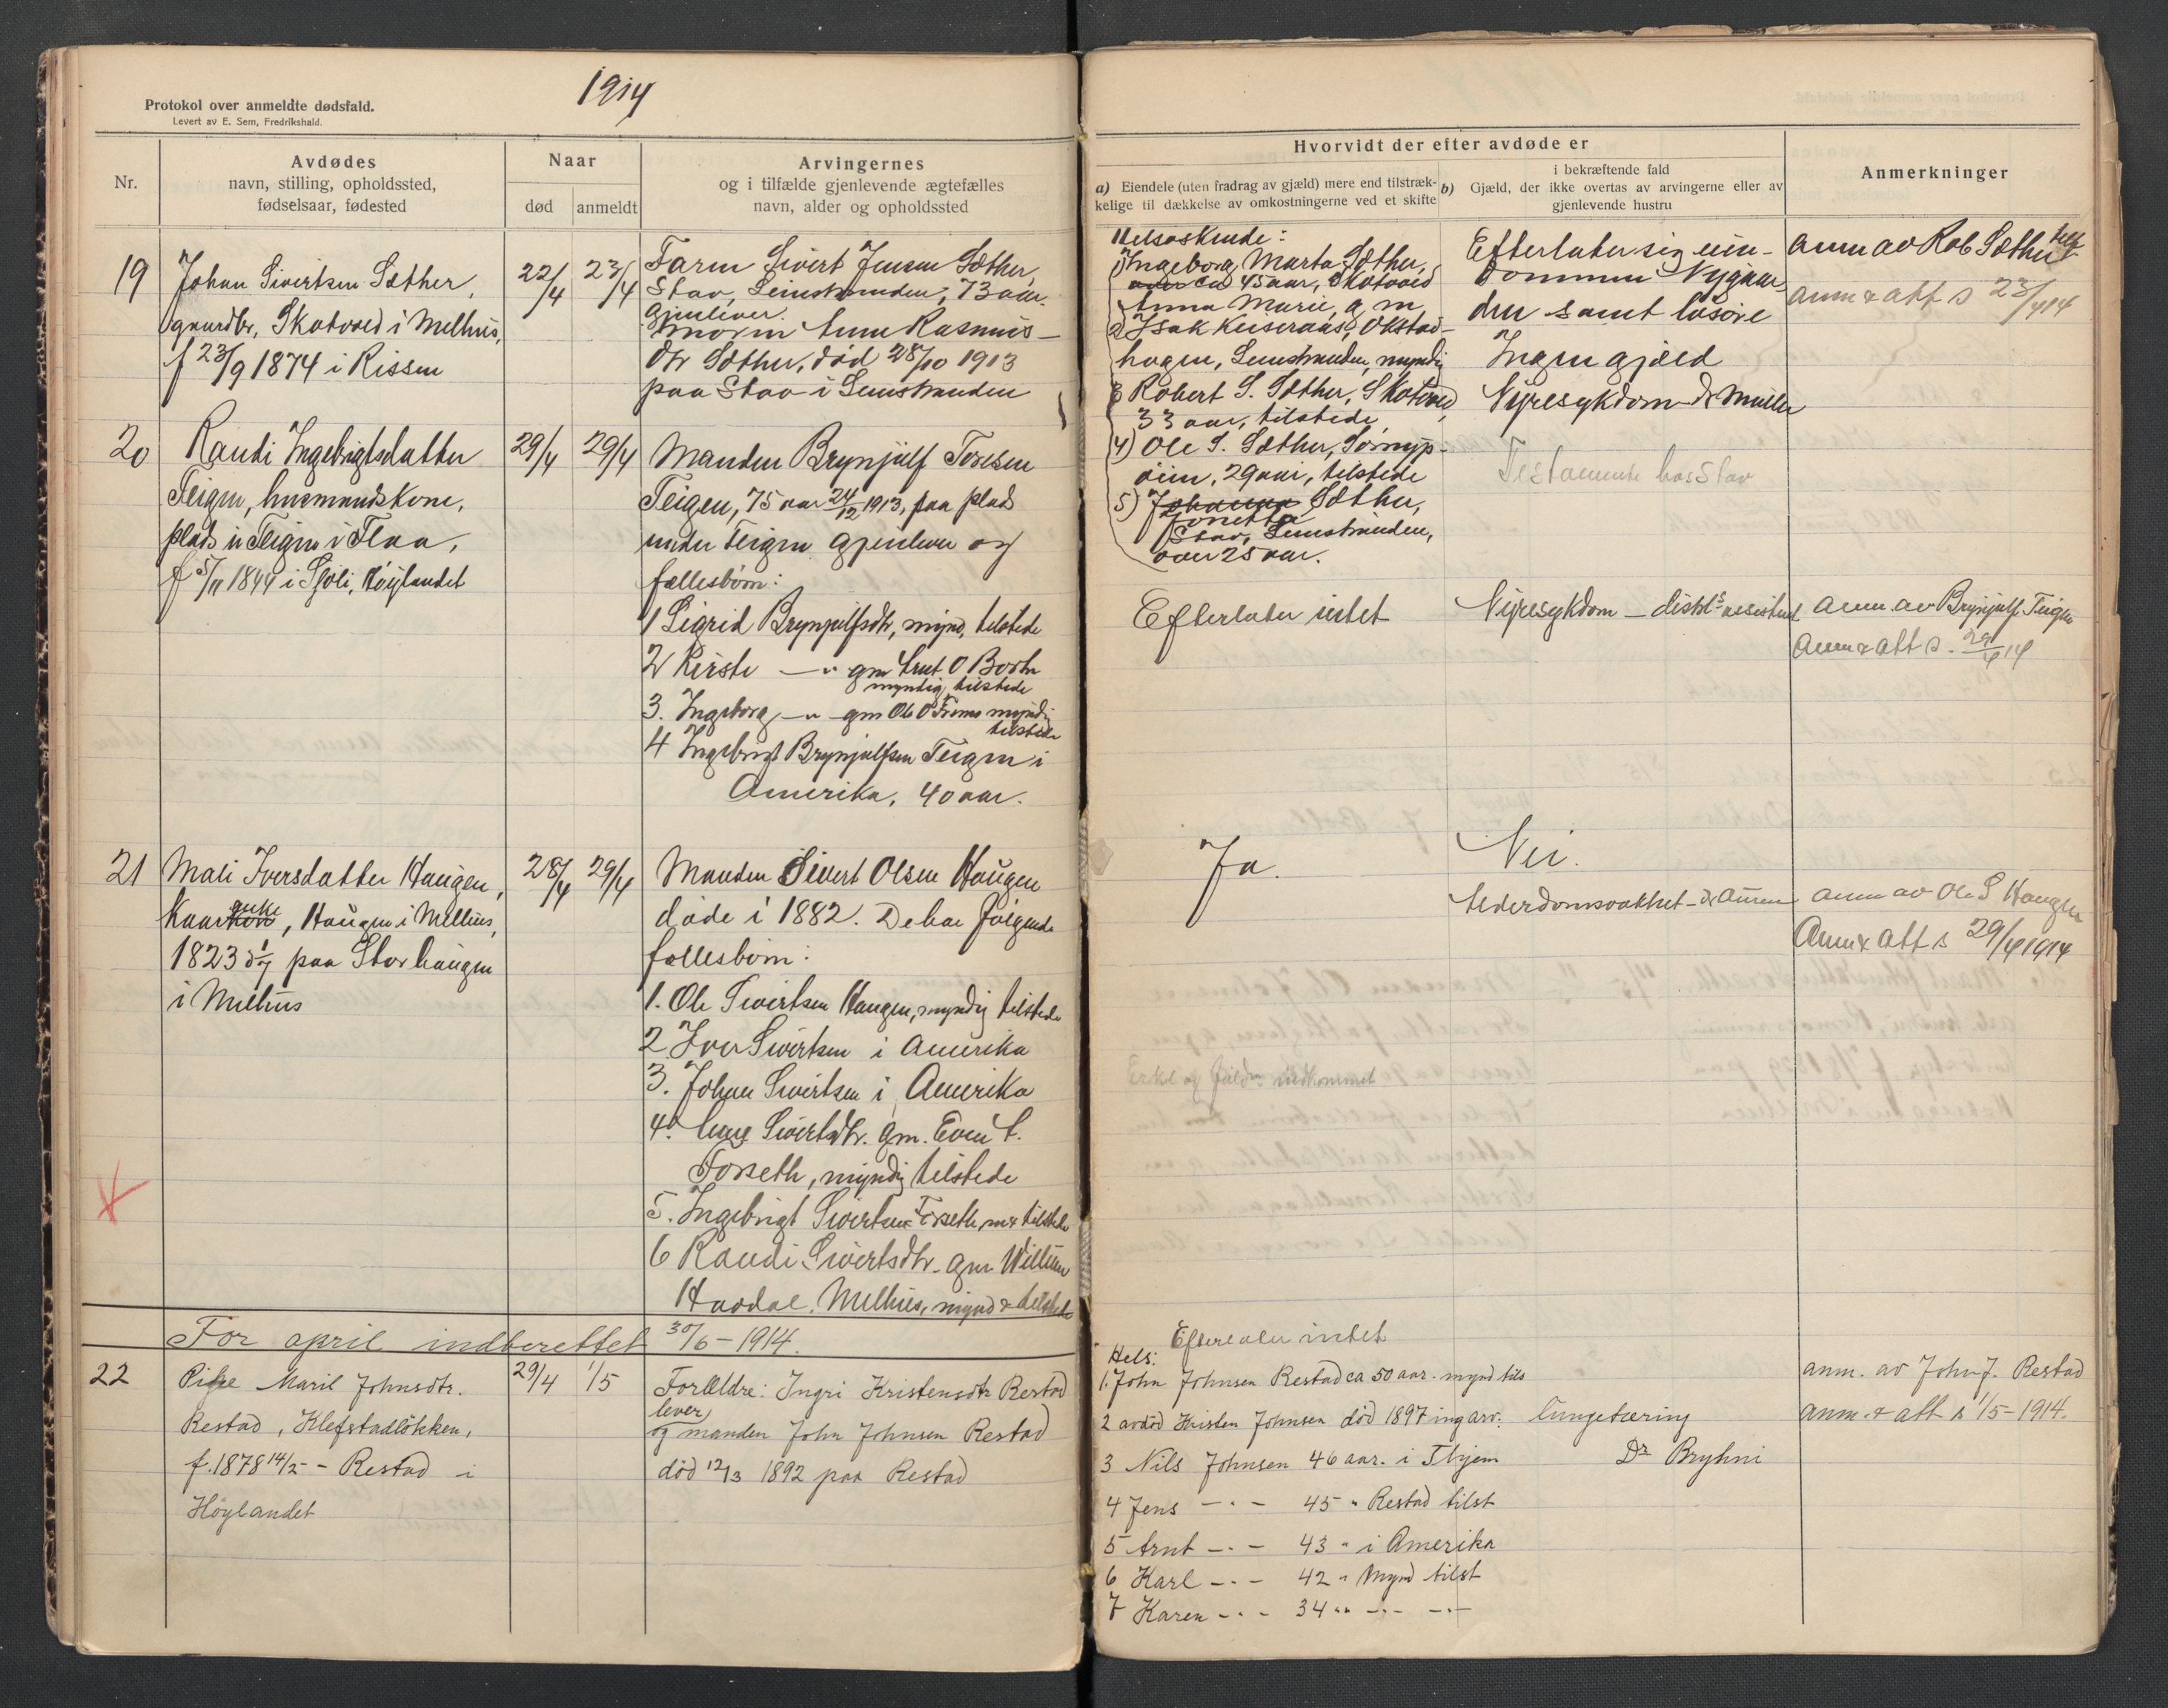 1914
Protokol over anmeldte dødsfald.
Levert av E. Sem, Fredrikshald.
Nr.
Avdødes
navn, stilling, opholdssted,
fødselsaar, fødested
Naar
død
anmeldt
Arvingernes
og i tilfælde gjenlevende ægtefælles
navn, alder og opholdssted
19
Johan Sivertsen Sæther,
gaardbr, Skotvold i Melhus,
f 23/9 1874 i Rissen
22/4
23/4
Farm Sivert Jensen Sæther,
Stav, Leinstranden, 73 aar.
gjenlever.
morm Anne Rasmus-
dtr Sæther, død 28/10 1913
paa Stav i Leinstranden
20
Randi Ingebrigtsdatter
Teigen, husmandskone,
plads u Teigen i Flaa,
f 5/11 1844 i Sjøli, Høylandet
29/4
29/4
Manden Brynjulf Toresen
Teigen, 75 aar 24/12 1913, paa plads
under Teigen gjenlever og
fællesbørn:
1 Sigrid Brynjulfsdtr, mynd, tilstede
2 Kirsti —"— gm Arnt O
myndig, tilstede
3. Ingeborg —"— gm Ole O myndig
tilstede
4 Ingebrigt Brynjulfsen Teigen i
Amerika, 40 aar.
21
Mali Iversdatter Haugen,
enke
Kaarkone, Haugen i Melhus,
1823 paa Storhaugen
i Melhus
28/4
29/4
Manden Sivert Olsen Haugen
døde i 1882. De har følgende
fællesbørn:
1. Ole Sivertsen Haugen, myndig tilstede
2 Iver Sivertsen i Amerika
3. Johan Sivertsen i Amerika
4. Ane Sivertsdtr. gm. Even
Forseth, myndig tilstede
5. Ingebrigt Sivertsen Forseth, m & tilstede
6 Randi Sivertsdtr. gm Willum
Havdal. Melhus, mynd & tilstede
For april indberettet 30/6-1914.
22
Pike Marit Johnsdtr.
Restad, Klefstadløkken,
f. 1878 14/5 - Restad i
Høylandet
29/4
1/5
Forældre: Ingri Kristensdtr Restad
lever
og manden John Johnsen Restad
død 12/3 1892 paa Restad
Hvorvidt der efter avdøde er
a) Eiendele (uten fradrag av gjæld) mere end tilstræk-
kelige til dækkelse av omkostningerne ved et skifte
b)
i bekræftende fald
Gjæld, der ikke overtas av arvingerne eller av
gjenlevende hustru
Anmerkninger
Helsøskende:
1) Ingeborg Marta Sæther,
ca 45 aar, Skotvold
Anna Marie, g m
2 Isak Keiseraas, Okstad-
haugen, Leinstranden, myndig
3 Robert S. Sæther, Skotvold,
33 aar, tilstede
4) Ole S. Sæther, Sørnyp-
øien, 29 aar, tilstede
5) Johanna Sæther,
Jonetta
Stav, Leinstranden,
over 25 aar.
Efterlater sig eien-
dommen Nygaar
den samt løsøre
Ingen gjæld
Nyresykdom - Dr Müller
Testamente hos Stav
anm av Rob Sæther
anm & att s 23/4 14
Efterlater intet
Nyresykdom — distrl's assistent
anm. av Brynjulf Teigen
Anm & att s. 29/4 14
Ja.
Nei.
Alderdomssvakhet -
anm av Ole S Haugen
Anm & att s 29/4 1914
Efterlater intet
Hels:
1. John Johnsen Restad ca 50 aar. mynd tils
2 avdød Kristen Johnsen død 1897 ing arv.
3 Nils Johnsen 46 aar. i Thjem
4 Jens —"— 45 " Restad tilst
5 Arnt —"— 43 " i Amerika
6 Karl —"— 42 " Mynd tilst
7 Karen —"— 34 " —"— —"—
lungetæring
Dr Bryhni
anm. av John J. Restad
anm. & att s 1/5-1914.